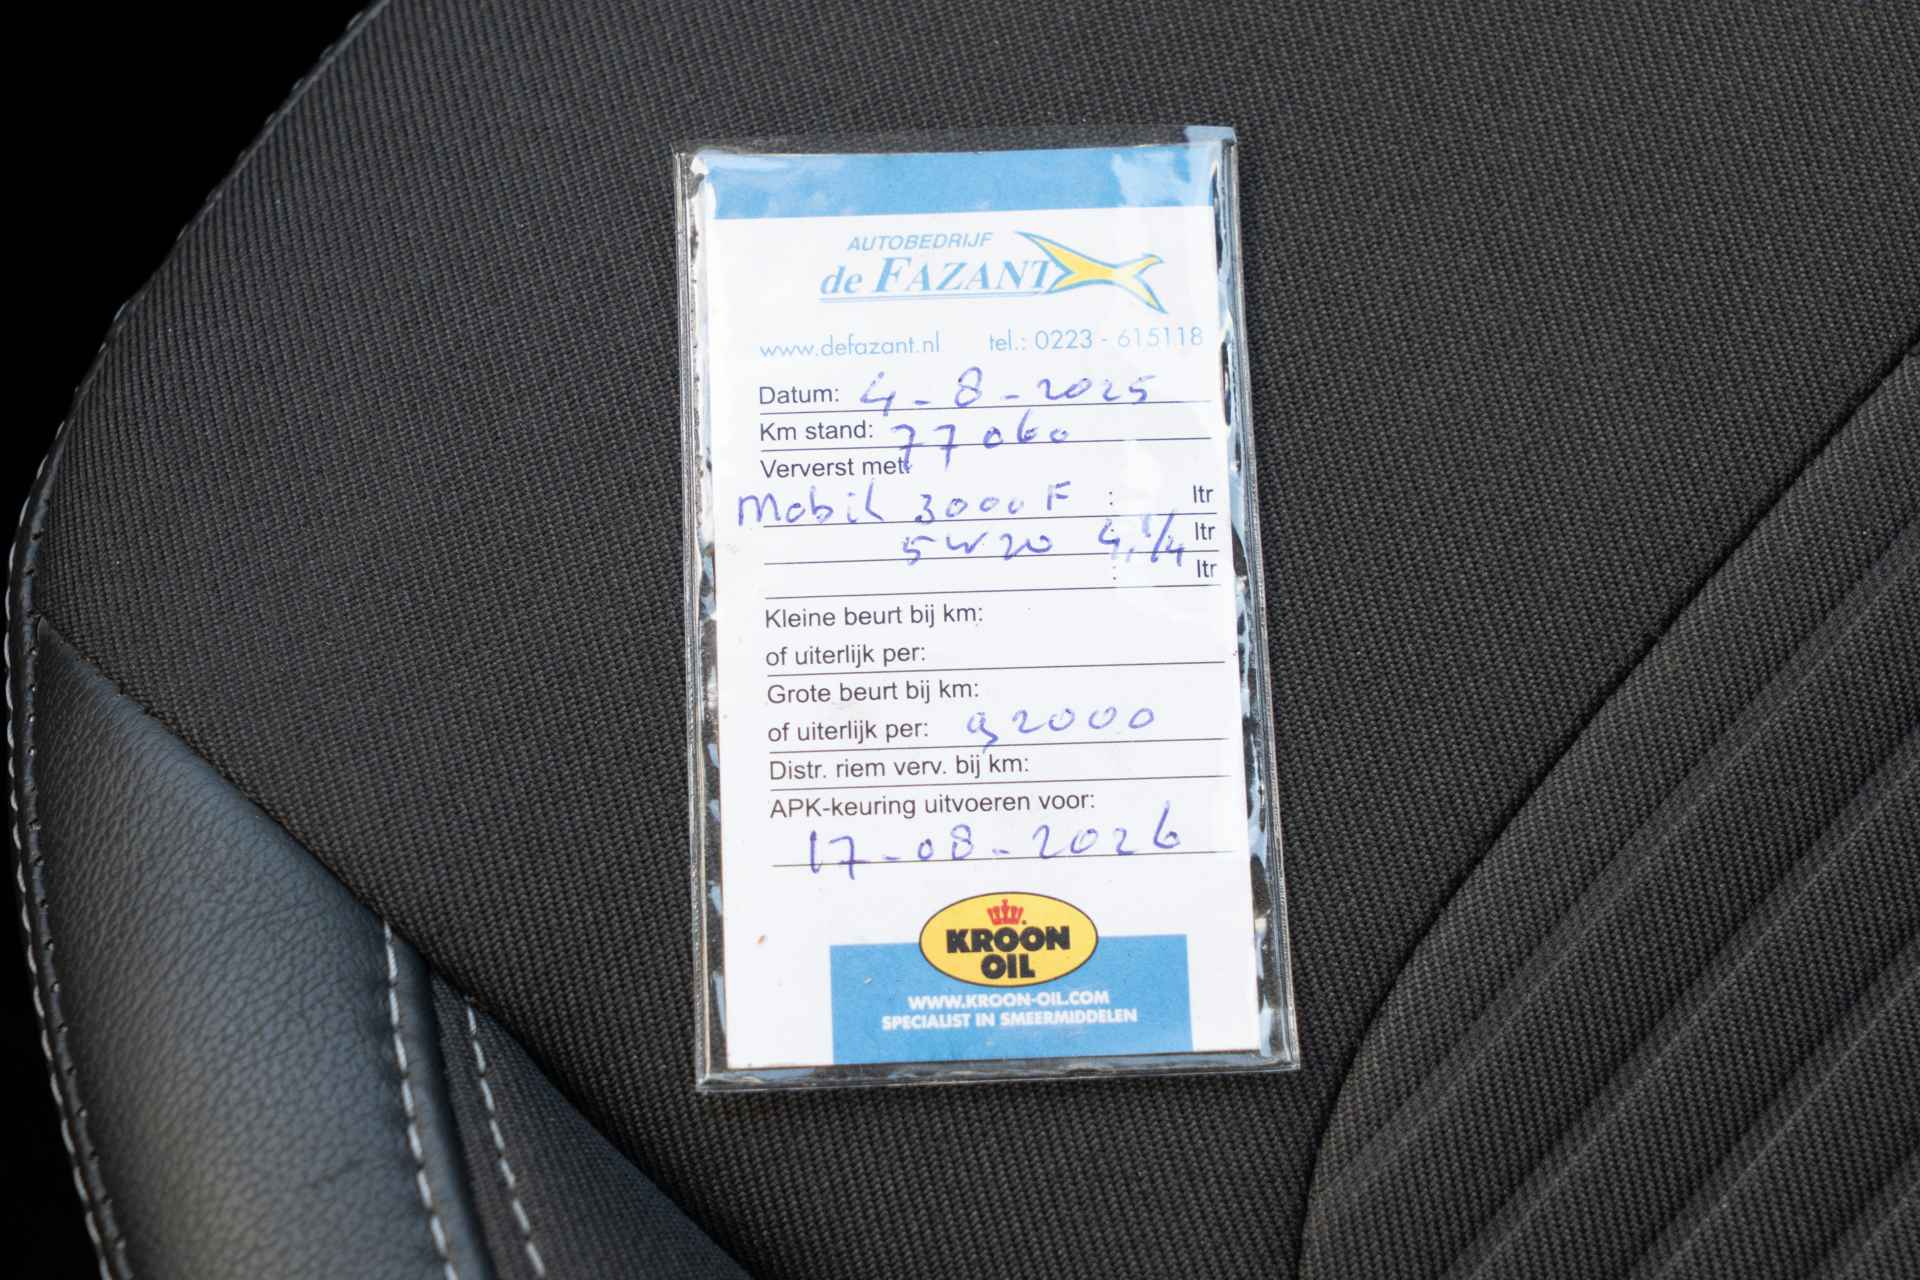 AUTOBEDRIJF
de FAZANT
www.defazant.nl tel.: 0223 - 615118
Datum: 4-8-2025
Km stand: 77060
Ververst met:
Mobil 3000 F : ltr
5W20 4,1/4 ltr
: ltr
Kleine beurt bij km:
of uiterlijk per:
Grote beurt bij km:
of uiterlijk per: 92000
Distr. riem verv. bij km:
APK-keuring uitvoeren voor:
17-08-2026
KROON
OIL
WWW.KROON-OIL.COM
SPECIALIST IN SMEERMIDDELEN